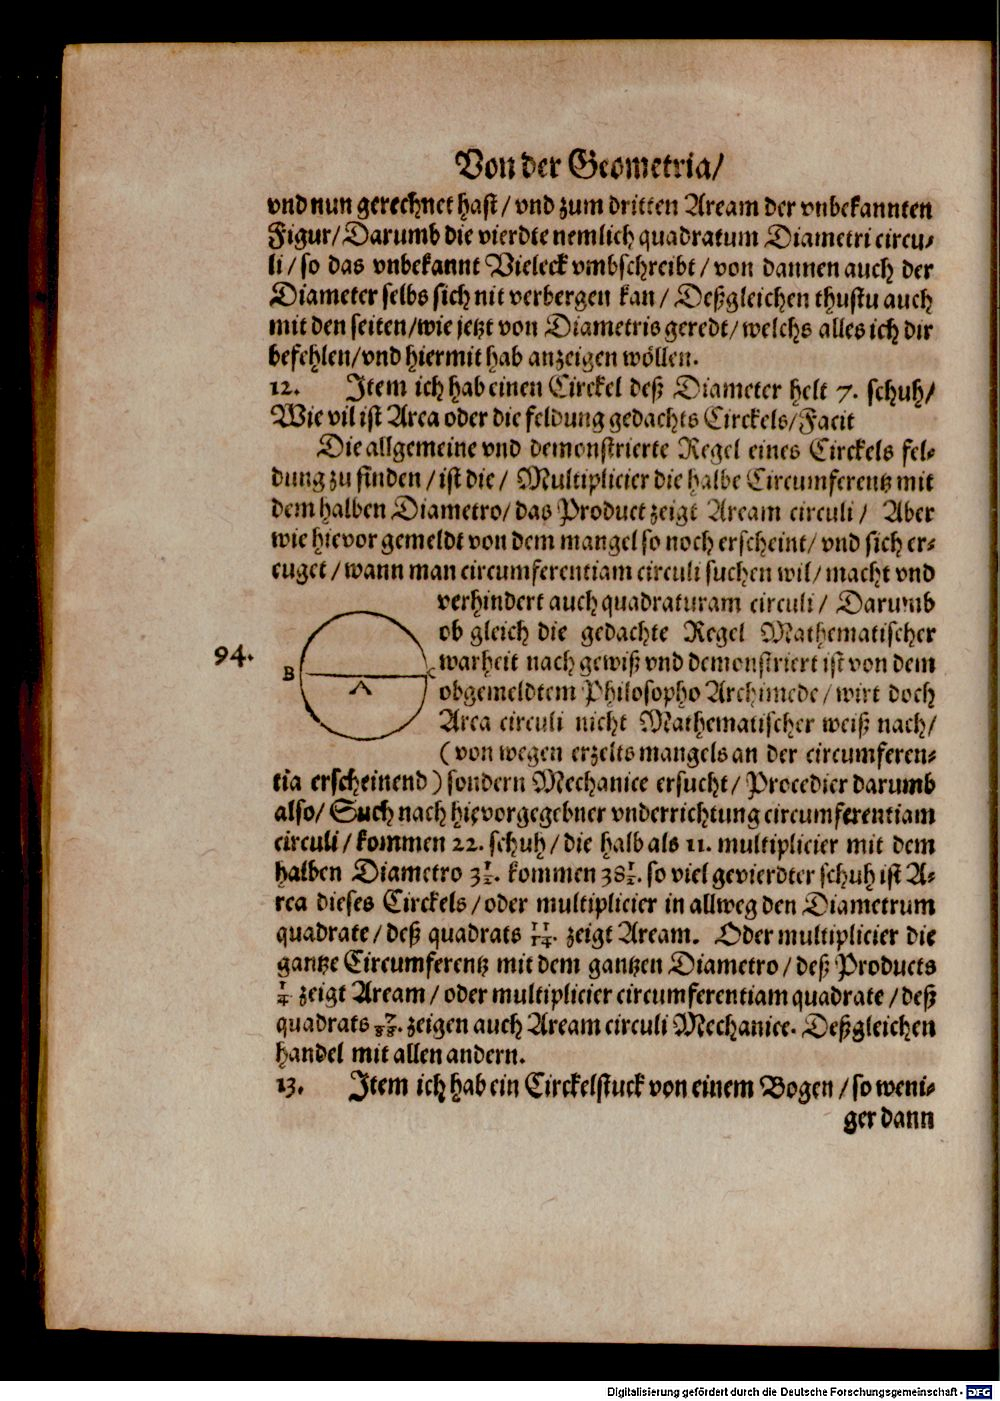 Von der Geometria/
vnd nun gerechnet hast / vnd zum dritten Aream der vnbekannten
Figur/ Darumb die vierdte nemlich quadratum Diametri circu-
li / so das vnbekannt Vieleck vmbschreibt / von dannen auch der
Diameter selbs sich nit verbergen kan / Deßgleichen thustu auch
mit den seiten/wie jetzt von Diametris geredt/ welchs alles ich dir
befehlen/vnd hiermit hab anzeigen wöllen.
12. Item ich hab einen Circkel deß Diameter helt 7. schuh/
Wie vil ist Area oder die feldung gedachts Circkels/Facit
Die allgemeine vnd demonstrierte Regel eines Circkels fel-
dung zu finden / ist die / Multiplicier die halbe Circumferentz mit
dem halben Diametro/ das Product zeigt Aream circuli / Aber
wie hievor gemeldt von dem mangel so noch erscheint/ vnd sich er-
euget / wann man circumferentiam circuli suchen wil/ macht vnd
verhindert auch quadraturam circuli / Darumb
ob gleich die gedachte Regel Mathematischer
warheit nach gewiß vnd demonstriert ist von dem
obgemeldtem Philosopho Archimede / wirt doch
Area circuli nicht Mathematischer weiß nach/
(von wegen erzelts mangels an der circumferen-
94.
B
A
C
tia erscheinend) sondern Mechanice ersucht / Procedier darumb
also/ Such nach hievorgegebner vnderrichtung circumferentiam
circuli / kommen 22. schuh / die halb als 11. multiplicier mit dem
halben Diametro 3 1/2. kommen 38 1/2. so viel gevierdter schuh ist A-
rea dieses Circkels / oder multiplicier in allweg den Diametrum
quadrate / deß quadrats 11/14. zeigt Aream. Oder multiplicier die
gantze Circumferentz mit dem gantzen Diametro / deß Products
1/4 zeigt Aream / oder multiplicier circumferentiam quadrate / deß
quadrats 7/88. zeigen auch Aream circuli Mechanice. Deßgleichen
handel mit allen andern.
13. Item ich hab ein Circkelstuck von einem Bogen / so weni-
ger dann
Digitalisierung gefördert durch die Deutsche Forschungsgemeinschaft - DFG